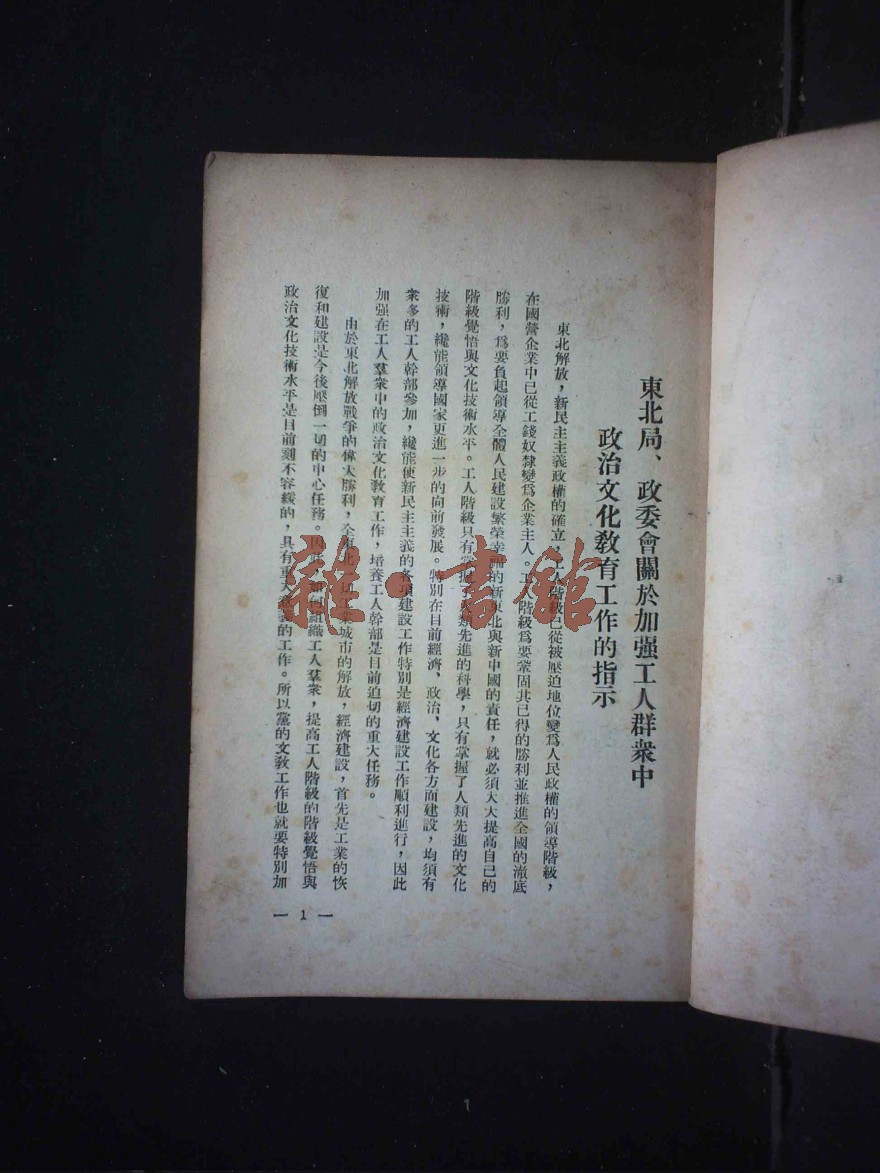 東北局、政委會關於加强工人群衆中
政治文化教育工作的指示
東北解放，新民主主義政權的確立，工人階級已從被壓迫地位變爲人民政權的領導階級，
在國營企業中已從工錢奴隸變爲企業主人。工人階級爲要鞏固其已得的勝利並推進全國的澈底
勝利，爲要負起領導全體人民建設繁榮幸福的新東北與新中國的責任，就必須大大提高自己的
階級覺悟與文化技術水平。工人階級只有掌握了人類先進的科學，只有掌握了人類先進的文化
技術，纔能領導國家更進一步的向前發展。特別在目前經濟、政治、文化各方面建設，均須有
衆多的工人幹部參加，纔能使新民主主義的各項建設工作特別是經濟建設工作順利進行，因此
加强在工人羣衆中的政治文化教育工作，培養工人幹部是目前迫切的重大任務。
由於東北解放戰爭的偉大勝利，全東北一切工業城市的解放，經濟建設，首先是工業的恢
復和建設是今後壓倒一切的中心任務。因此，如何組織工人羣衆，提高工人階級的階級覺悟與
政治文化技術水平是目前刻不容緩的，具有重大意義的工作。所以黨的文教工作也就要特別加
— 1 —
雜·書館